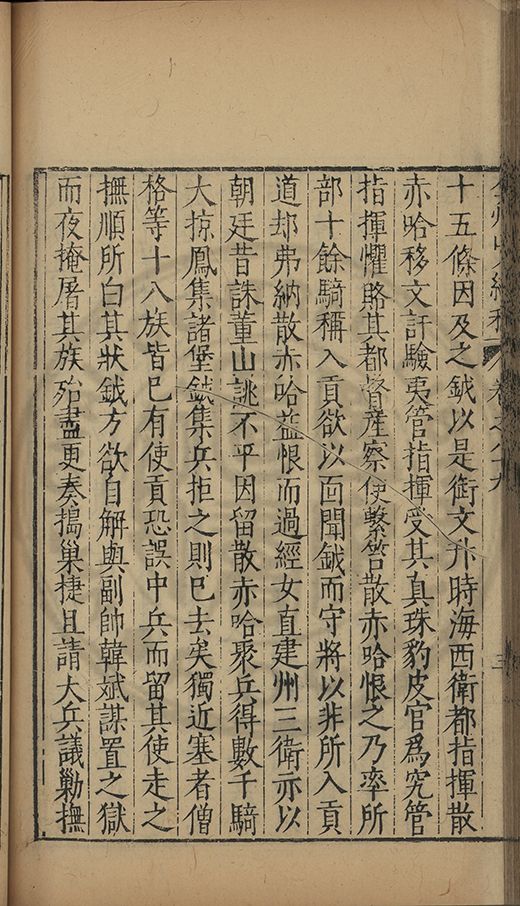 十五條因及之鉞以是銜文升時海西衛都指揮散
赤哈移文訐驗夷管指揮受其真珠豹皮官爲究管
指揮懼賂其都督産察使繫笞散赤哈恨之乃率所
部十餘騎稱入貢欲以面聞鉞而守將以非所入貢
道却弗納散赤哈益恨而過經女直建州三衛亦以
朝廷昔誅董山誂不平因留散赤哈聚兵得數千騎
大掠鳳集諸堡鉞集兵拒之則已去矣獨近塞者僧
格等十八族皆已有使貢恐誤中兵而留其使走之
撫順所白其狀鉞方欲自解與副帥韓斌謀置之獄
而夜掩屠其族殆盡更奏搗巢捷且請大兵議勦撫
卷之八十九
三